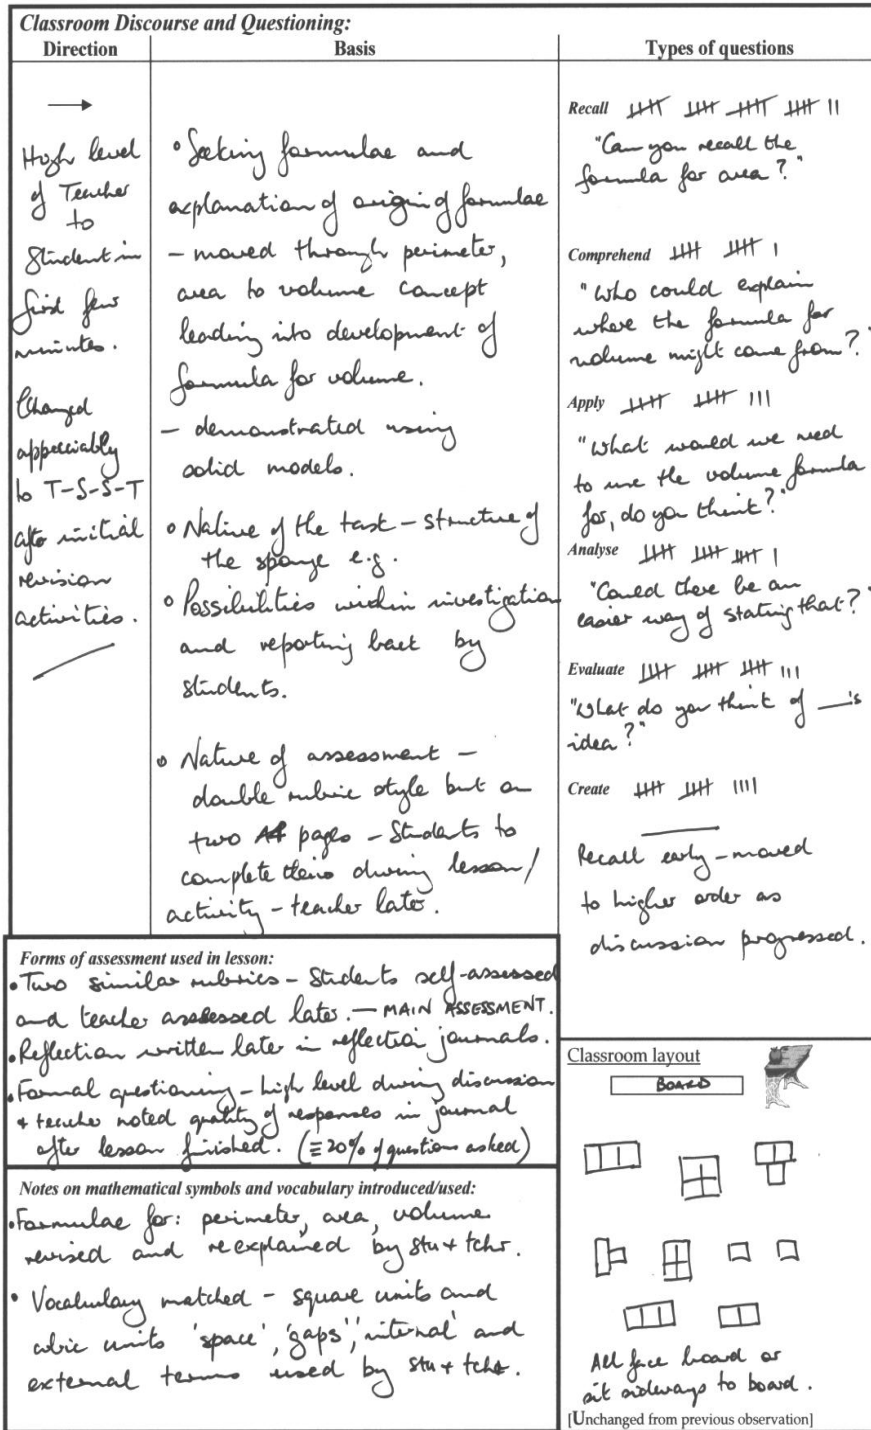 Classroom Discourse and Questioning:
Direction
→
High level
of Teacher
to
Student in
first few
minutes.
Changed
appreciably
to T-S-S-T
after initial
revision
activities.
Basis
• Seeking formulae and
explanation of origin of formulae
- moved through perimeter,
area to volume concept
leading into development of
formula for volume.
- demonstrated using
solid models.
• Nature of the task - structure of
the sponge e.g.
• Possibilities within investigation
and reporting back by
students.
• Nature of assessment -
double rubric style but on
two A4 pages - Students to
complete theirs during lesson/
activity - teacher later.
Types of questions
Recall 卌 卌 卌 卌 ||
"Can you recall the
formula for area?"
Comprehend 卌 卌 |
"Who could explain
where the formula for
volume might come from?"
Apply 卌 卌 |||
"What would we need
to use the volume formula
for, do you think?"
Analyse 卌 卌 卌 |
"Could there be an
easier way of stating that?"
Evaluate 卌 卌 卌 |||
"What do you think of __'s
idea?"
Create 卌 卌 ||||
Recall early - moved
to higher order as
discussion progressed.
Forms of assessment used in lesson:
• Two similar rubrics - Students self-assessed
and teacher assessed later. - MAIN ASSESSMENT.
• Reflection written later in reflection journals.
• Formal questioning - high level during discussion
+ teacher noted quality of responses in journal
after lesson finished. (≡ 20% of questions asked)
Notes on mathematical symbols and vocabulary introduced/used:
• Formulae for: perimeter, area, volume
revised and reexplained by stu + tchr.
• Vocabulary matched - square units and
cubic units 'space', 'gaps', 'internal' and
external terms used by stu + tchr.
Classroom layout
BOARD
All face board or
sit sideways to board.
[Unchanged from previous observation]